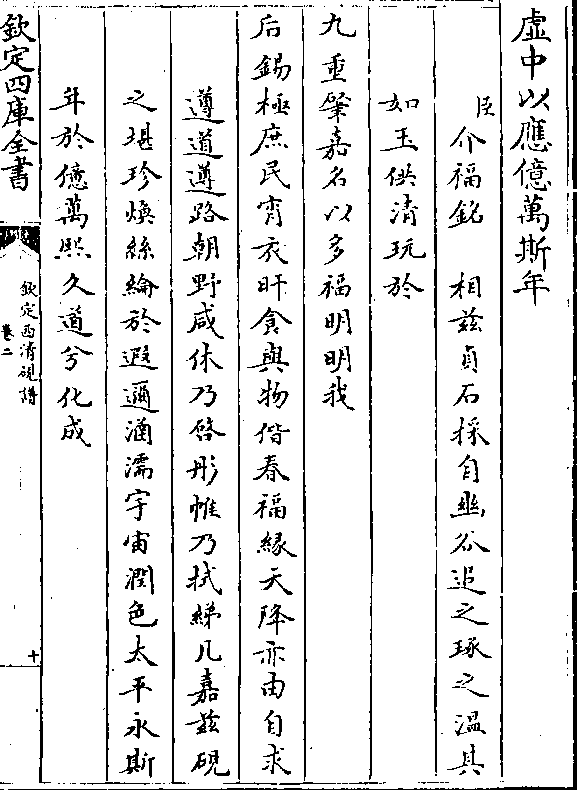 虛中以應億萬斯年
臣介福銘　相兹貞石採自幽谷追之琢之溫其
如玉供清玩於
九重肇嘉名以多福明明我
后錫極庶民宵衣旰食與物偕春福緣天降亦由自求
遵道遵路朝野咸休乃啓彤帷乃拭綈几嘉兹硯
之堪珍煥絲綸於遐邇涵濡宇宙潤色太平永斯
年於億萬熙久道兮化成
欽定四庫全書
欽定西清硯譜
卷二
十